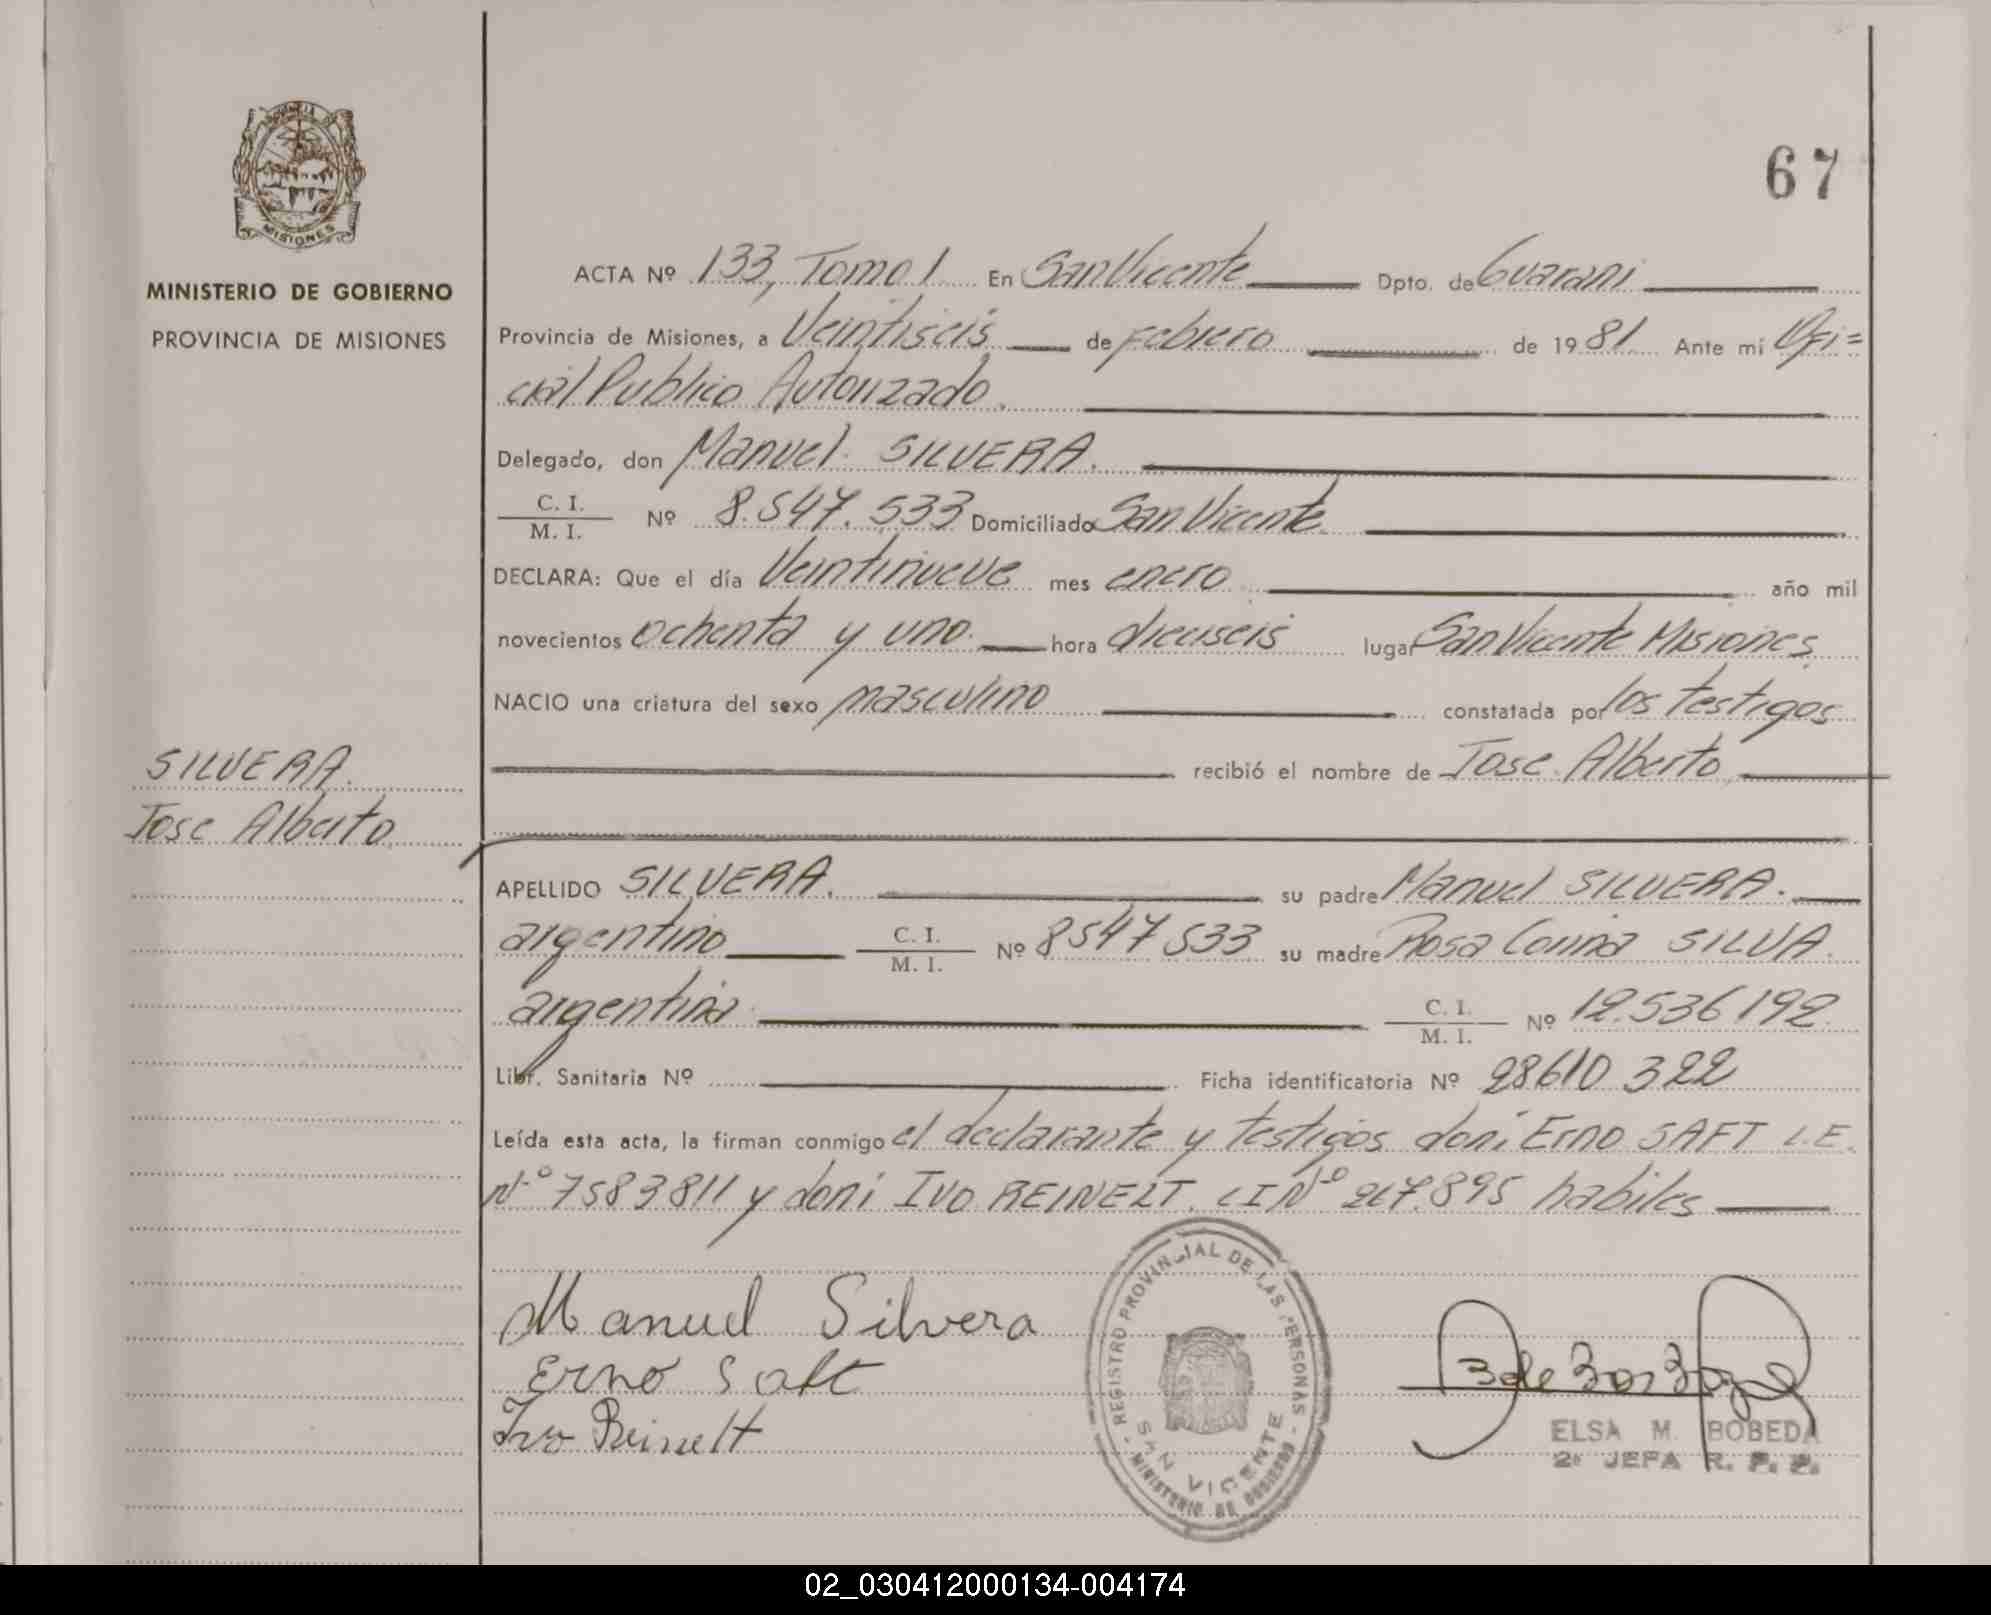 67
MISIONES
MINISTERIO DE GOBIERNO
PROVINCIA DE MISIONES
SILVERA.
Jose Alberto
ACTA Nº 133, Tomo I En San Vicente Dpto. de Guarani
Provincia de Misiones, a Veintiseis de Febrero de 1981 Ante mi Ofi=
cial Publico Autorizado.
Delegado, don Manuel SILVERA.
C. I.
M. I. Nº 8.547.533 Domiciliado San Vicente
DECLARA: Que el día Veintinueve mes enero año mil
novecientos ochenta y uno hora dieciseis lugar San Vicente Misiones.
NACIO una criatura del sexo masculino constatada por los testigos
recibió el nombre de Jose Alberto
APELLIDO SILVERA. su padre Manuel SILVERA.
argentino C. I. M. I. Nº 8547533 su madre Rosa Corina SILVA.
argentina C. I. M. I. Nº 12.536192
Libr. Sanitaria Nº Ficha identificatoria Nº 28610322
Leída esta acta, la firman conmigo el declarante y testigos don: Erno SAFT L.E.
Nº 7583811 y don: IVO REINELT. CI Nº 267.895 habiles
Manuel Silvera
Erno Saft
Ivo Reinelt
REGISTRO PROVINCIAL DE LAS PERSONAS
SAN VICENTE
MINISTERIO DE GOBIERNO
ELSA M. BOBEDA
2ª JEFA R. P. P.
02_030412000134-004174